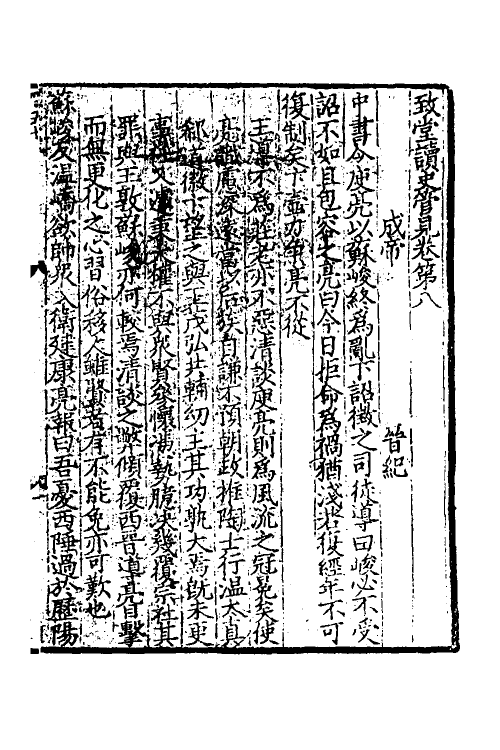 致堂讀史管見卷第八
成帝 晉紀
中書令庾亮以蘇峻終為亂下詔徵之司徒導曰峻必不受
詔不如且包容之亮曰今日拒命為禍猶淺若復經年不可
復制矣卞壼力爭亮不從
王導不為性老亦不惡清談庾亮則為風流之冠冕矣使
亮識慮深遠當以后族自謙不預朝政推陶士行溫太真
郗道徽卞望之與王茂弘共輔幼王其功孰大焉旣未更
事任又遽秉大權不與眾賢參懷憑勢騁決幾覆宗社其
罪與王敦蘇峻亦何較焉清談之弊傾覆西晉導亮目擊
而無更化之心習俗移人雖賢者有不能免亦可歎也
蘇峻反溫嶠欲帥眾入衛建康亮報曰吾憂西陲過於歷陽